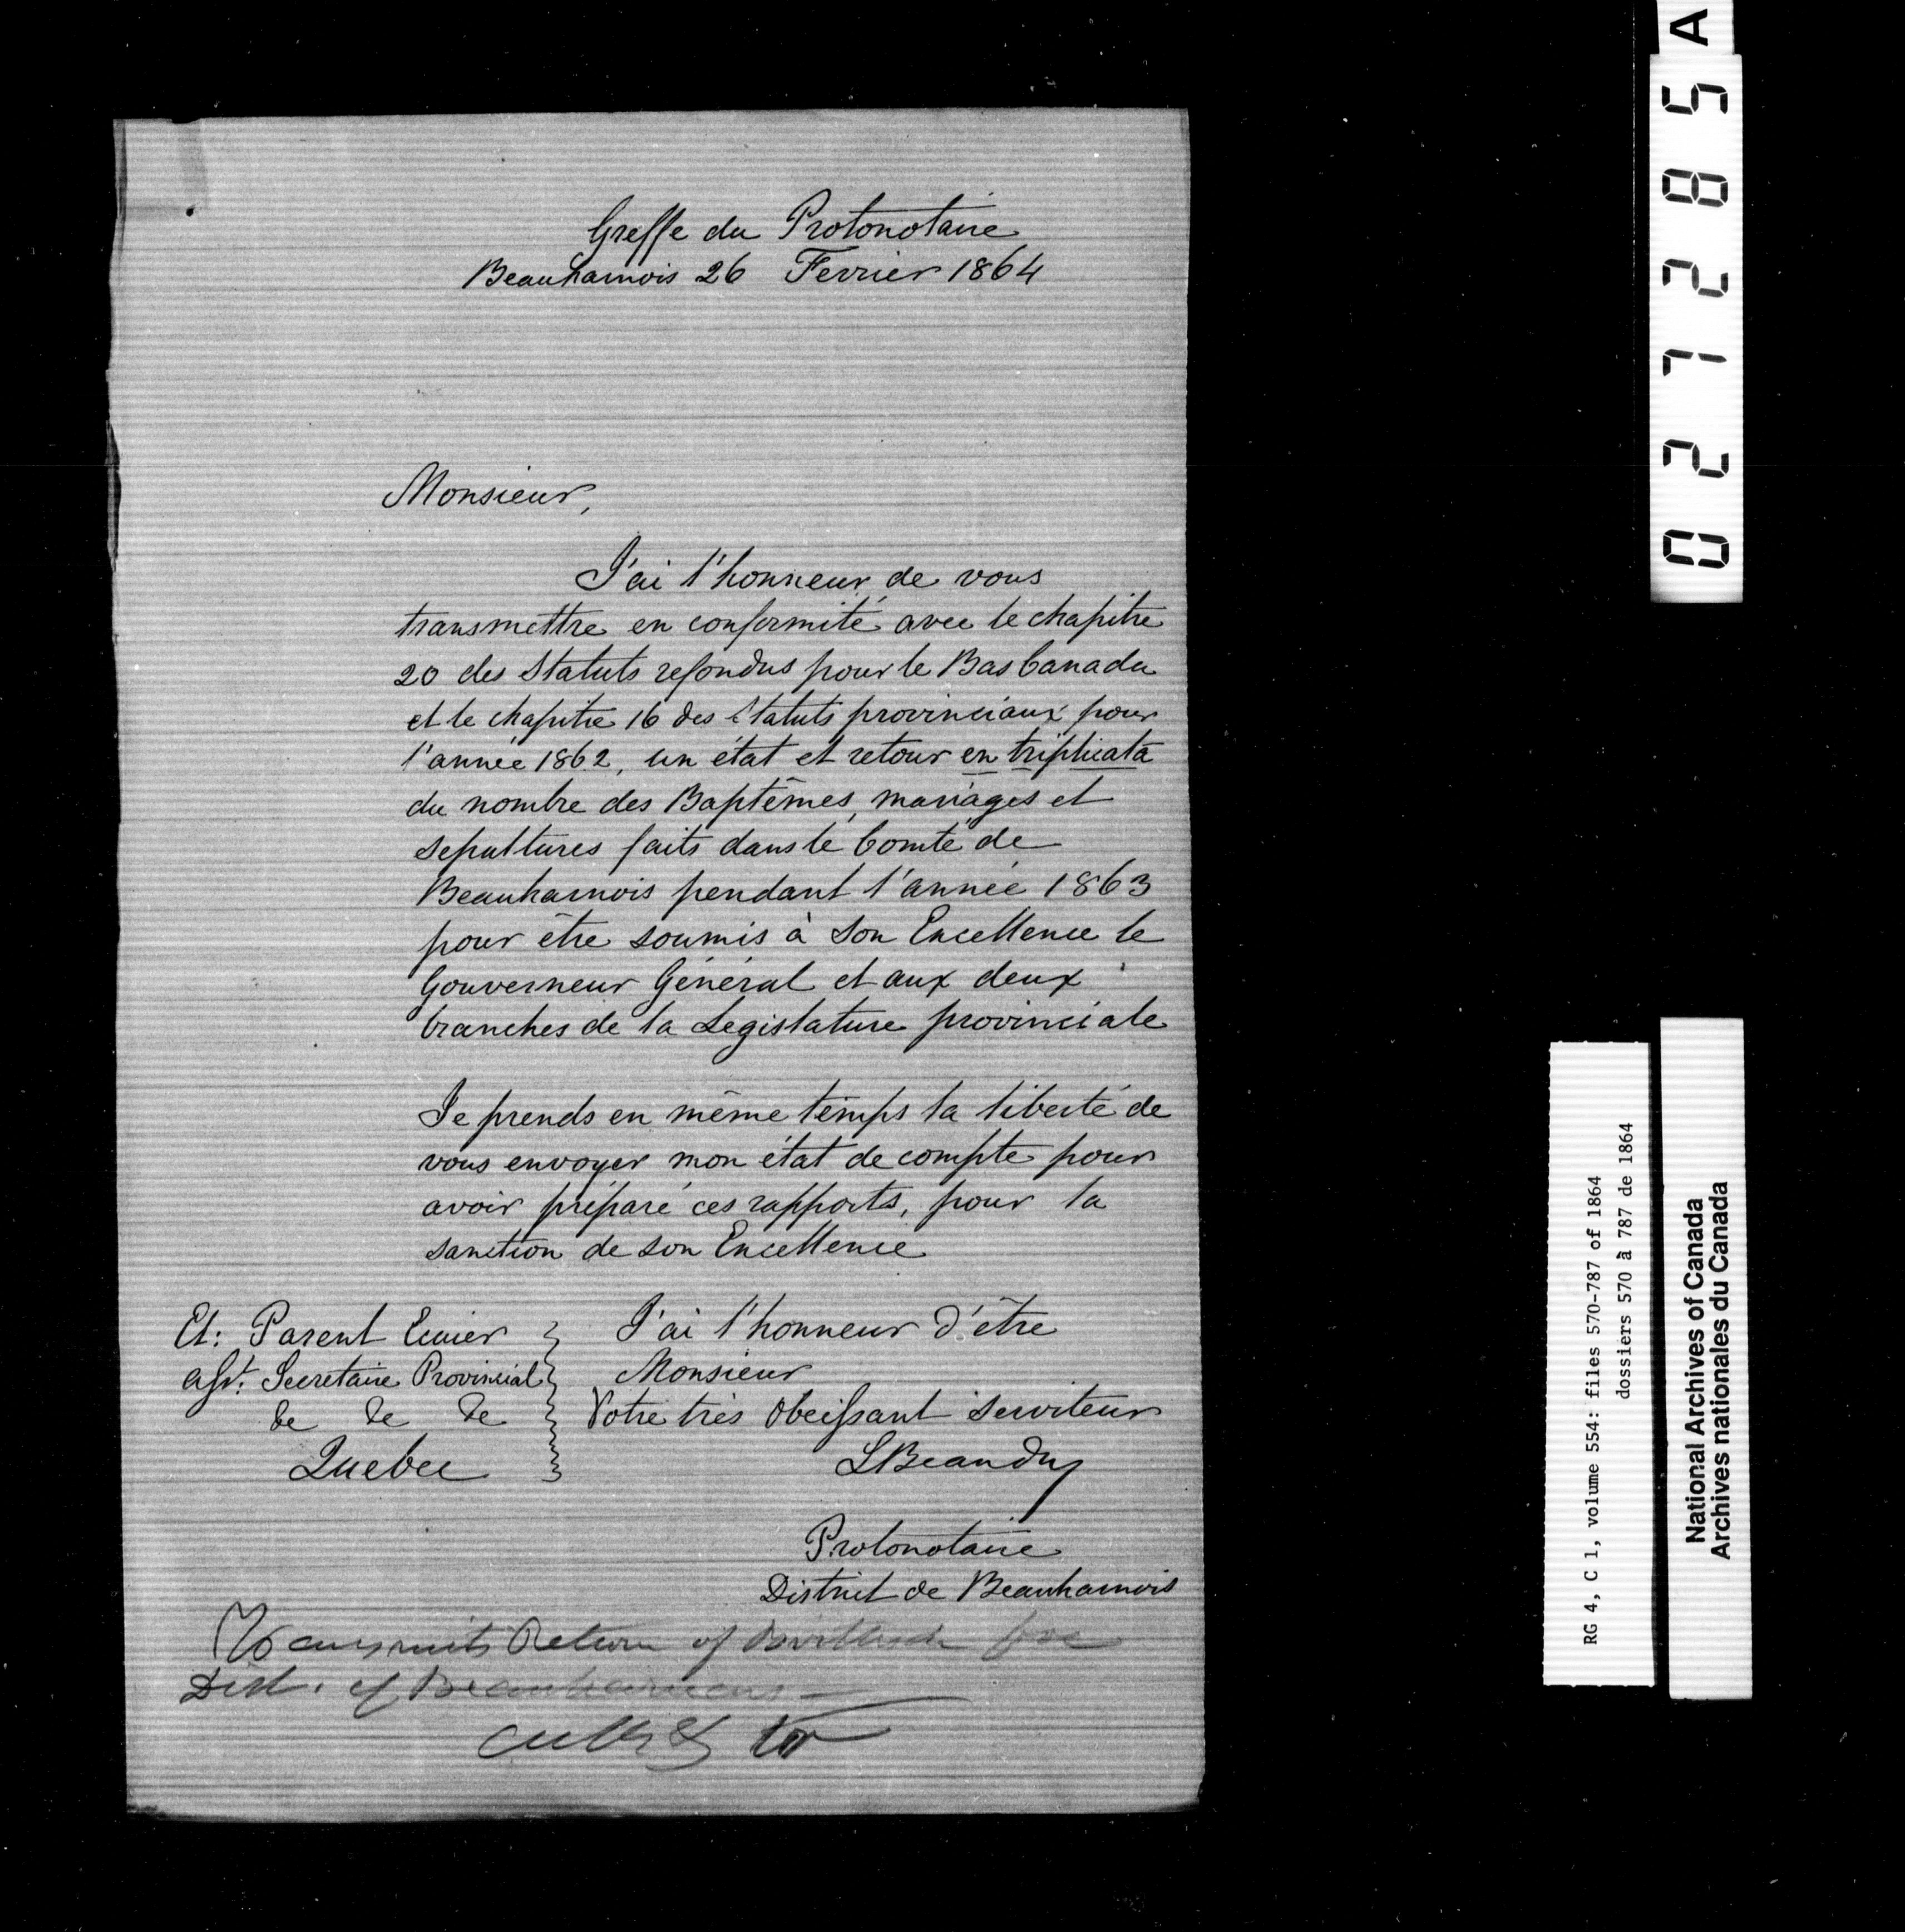 Greffe du Protonotaire
Beauharnois 26 Fevrier 1864
Monsieur,
J'ai l'honneur de vous
transmettre en conformité avec le chapitre
20 des Statuts refondus pour le Bas Canada
et le chapitre 16 des Statuts provinciaux pour
l'année 1862, un état et retour en triplicata
du nombre des Baptêmes, mariages et
sepultures faits dans le Comté de
Beauharnois pendant l'année 1863
pour être soumis à Son Excellence le
Gouverneur Général et aux deux
branches de la Legislature provinciale
Je prends en même temps la liberté de
vous envoyer mon état de compte pour
avoir préparé ces rapports, pour la
sanction de son Excellence
Et: Parent Ecuier
Asst. Secretaire Provincial
&c &c &c
Quebec
J'ai l'honneur d'être
Monsieur
Votre très Obeissant Serviteur
L Beaudry
Protonotaire
District de Beauharnois
Transmits Return of for
Dist. of Beauharnois
A
027285
RG 4, C 1, volume 554: files 570-787 of 1864
dossiers 570 à 787 de 1864
National Archives of Canada
Archives nationales du Canada